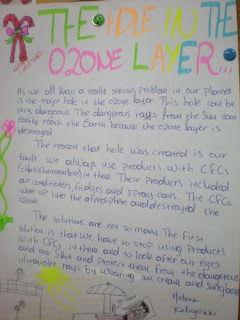 THE HOLE IN THE
OZONE LAYER...
As we all know a really serious problem in our planet
is the major hole in the ozone layer. This hole can be
very dangerous. The dangerous rays from the Sun can
easily reach the Earth because the ozone layer is
destroyed.
The reason that hole was created is our
fault. We always use products with CFCs
(chlorofluorocarbon) in them. These products included
air conditioners, fridges and spray cans. The CFCs
went up into the atmosphere and destroyed the
ozone.
The solutions are not so many. The first
solution is that we have to stop using products
with CFCs in them and to look after our eyes
and our skin and protect them from the dangerous
ultraviolet rays by wearing sun cream and sunglasses
Helena